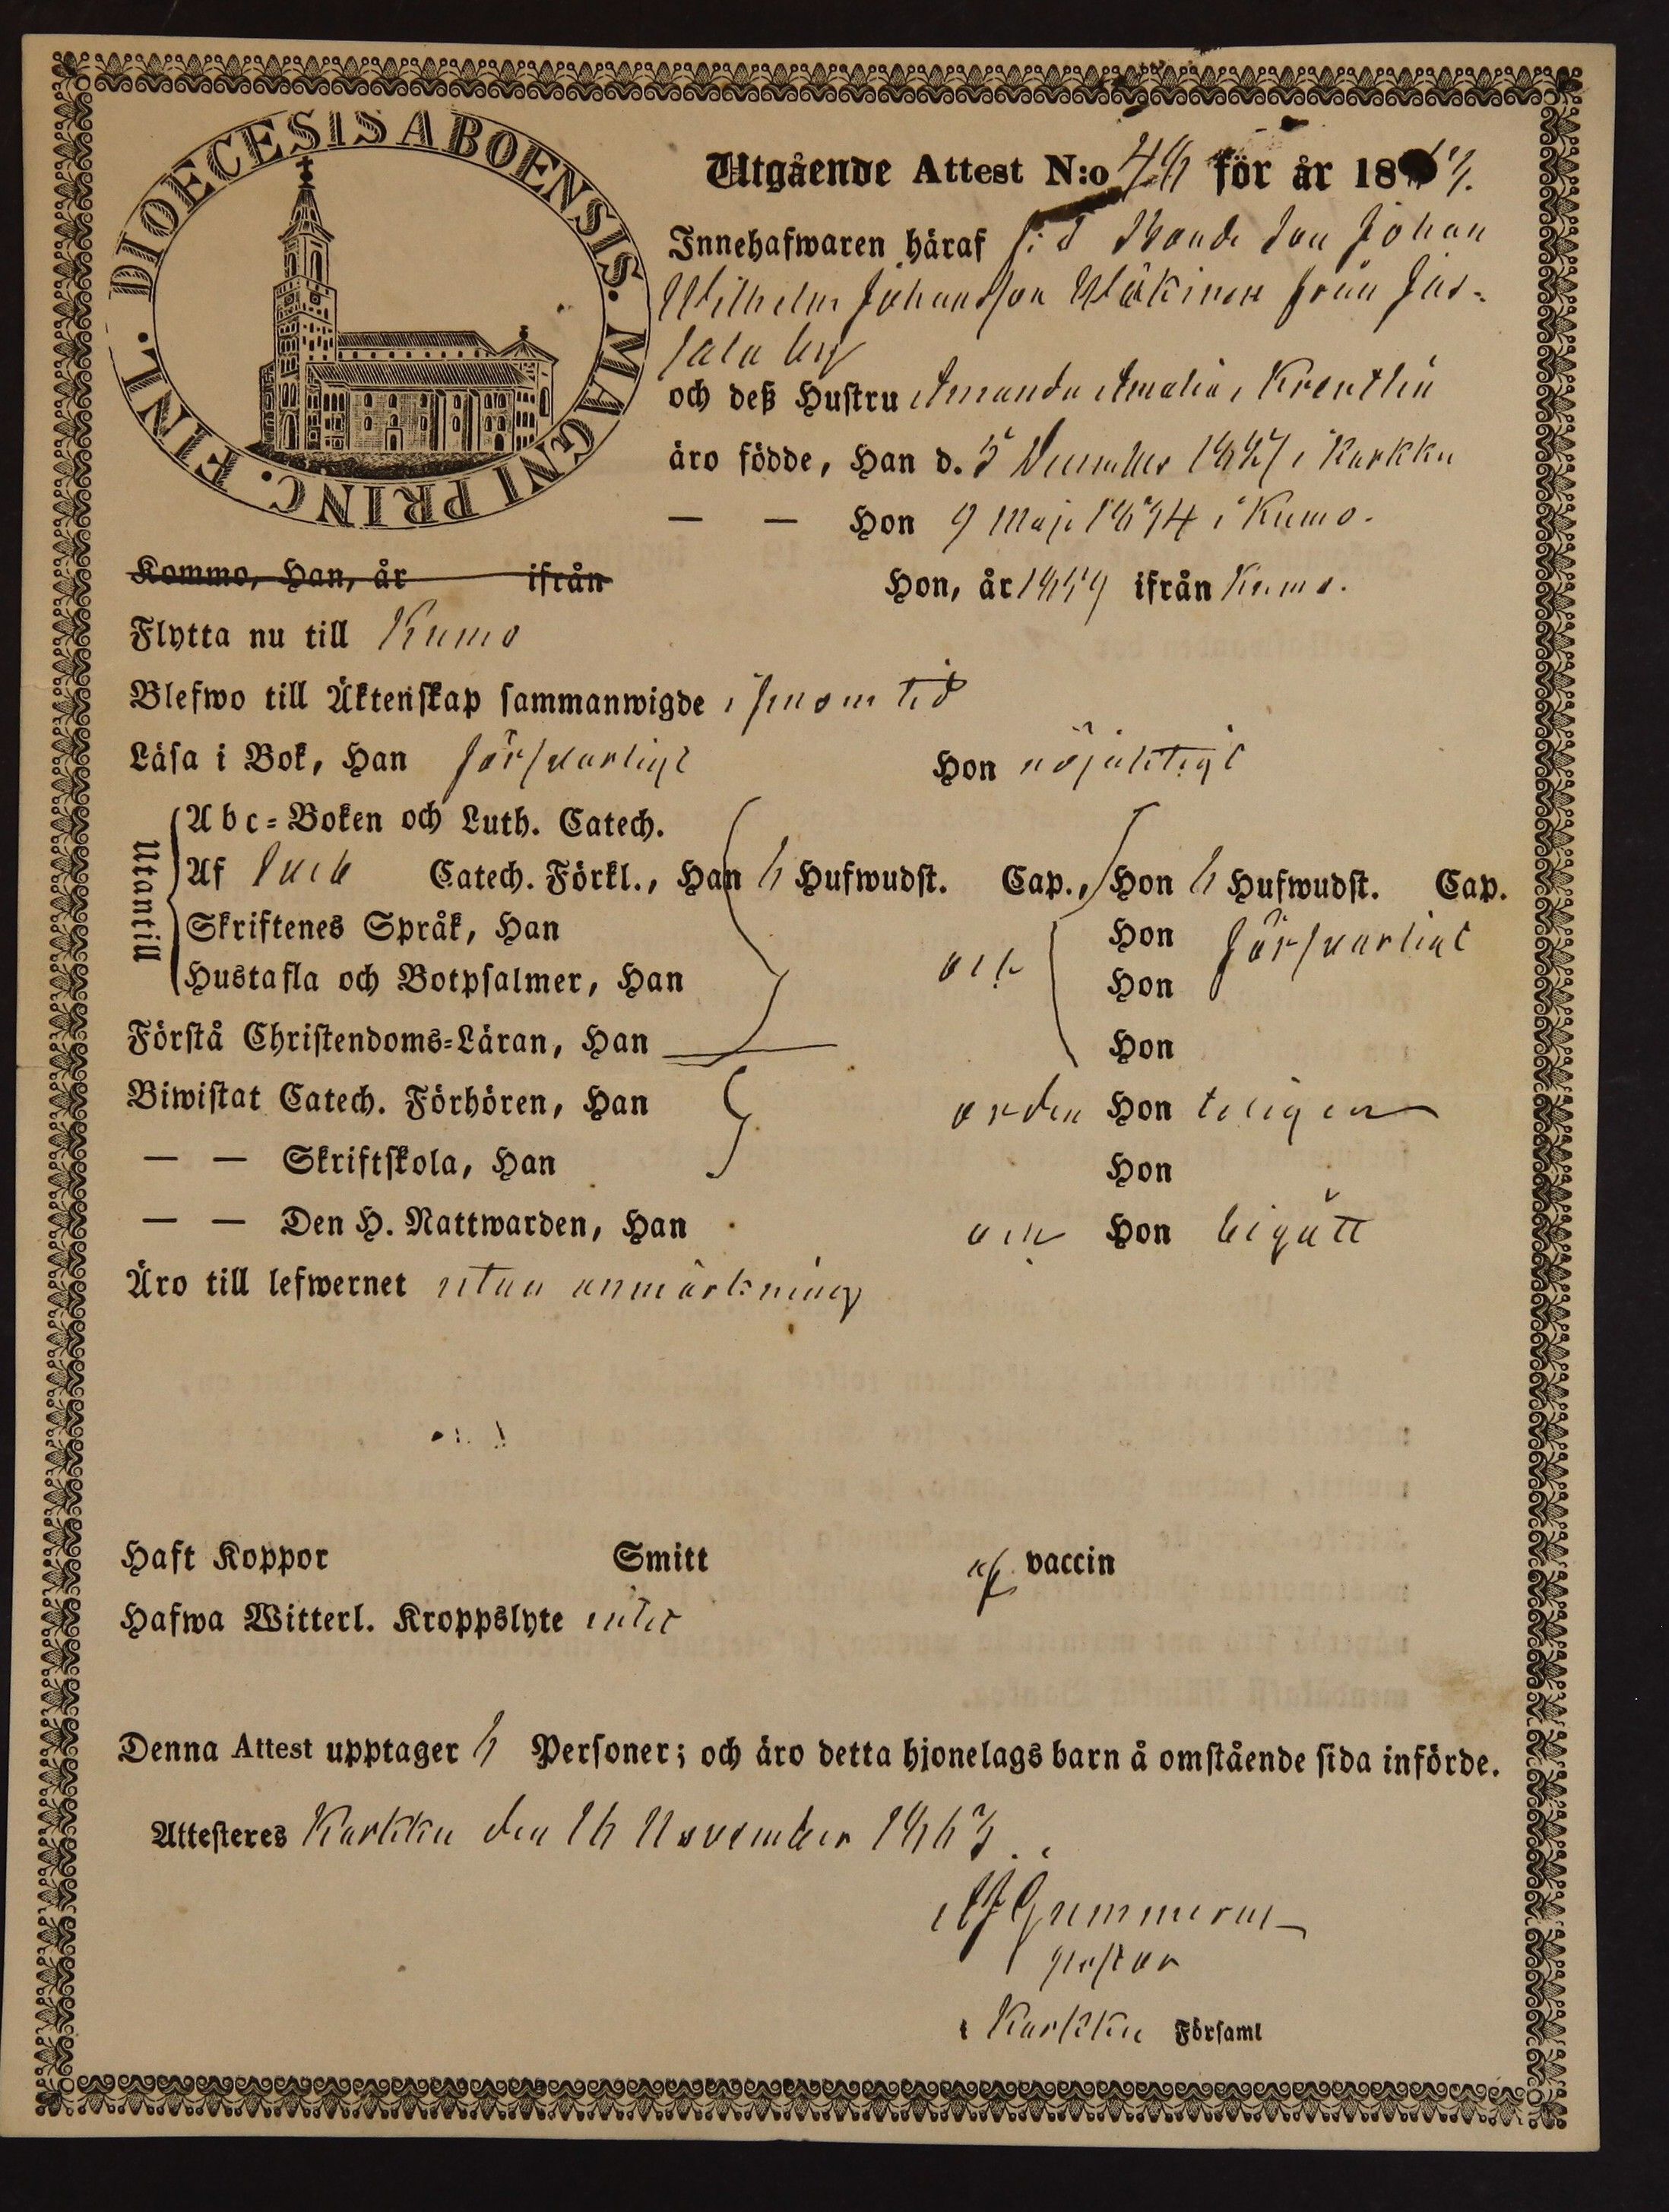 DIOECESIS ABOENSIS. MAGNI PRINC. FINL.
Utgående Attest N:o för år 18
Innehafwaren häraf f: d Bonde Son Johan
Wilhelm Johansson Mäkinen från
by
och deß Hustru Amanda Amalia Krentlin
äro födde, Han d. 5 December i Karkku
— — Hon 9 Maji i Kumo.
Kommo, Han, år ifrån Hon, år ifrån Kumo.
Flytta nu till Kumo
Blefwo till Äktenskap sammanwigde i sinom tid
Läsa i Bok, Han försvarligt Hon nöjaktigt
Utantill
Abc-Boken och Luth. Catech.
Af Catech. Förkl., Han 6 Hufwudst. Cap., Hon 6 Hufwudst. Cap.
Skriftenes Språk, Han Hon försvarligt
Hustafla och Botpsalmer, Han och Hon
Förstå Christendoms-Läran, Han Hon
Biwistat Catech. Förhören, Han orden Hon teligen
— — Skriftskola, Han Hon
— — Den H. Nattwarden, Han Hon begått
Äro till lefwernet utan anmärkning
Haft Koppor Smitt af vaccin
Hafwa Witterl. Kroppslyte intet
Denna Attest upptager 6 Personer; och äro detta hjonelags barn å omstående sida införde.
Attesteres Karkku den 16 November 1863.
Gummerus
pastor
i Karkku Församl